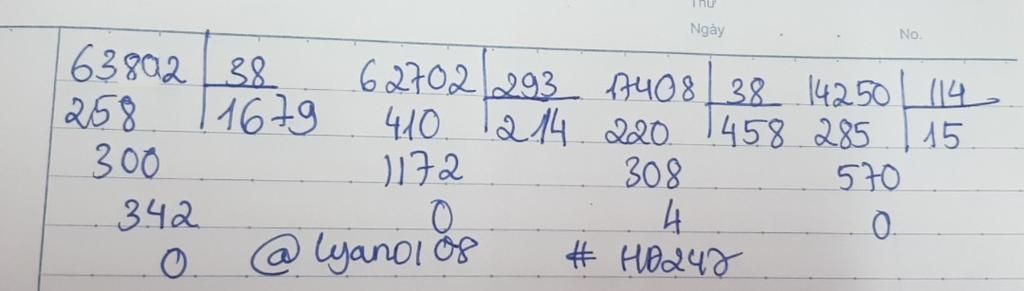 Thứ
Ngày . . No.
63802 38 62702 293 17408 38 14250 114
258 1679 410 214 220 458 285 15
300 1172 308 570
342 0 4 0
0 @lyan0108 #